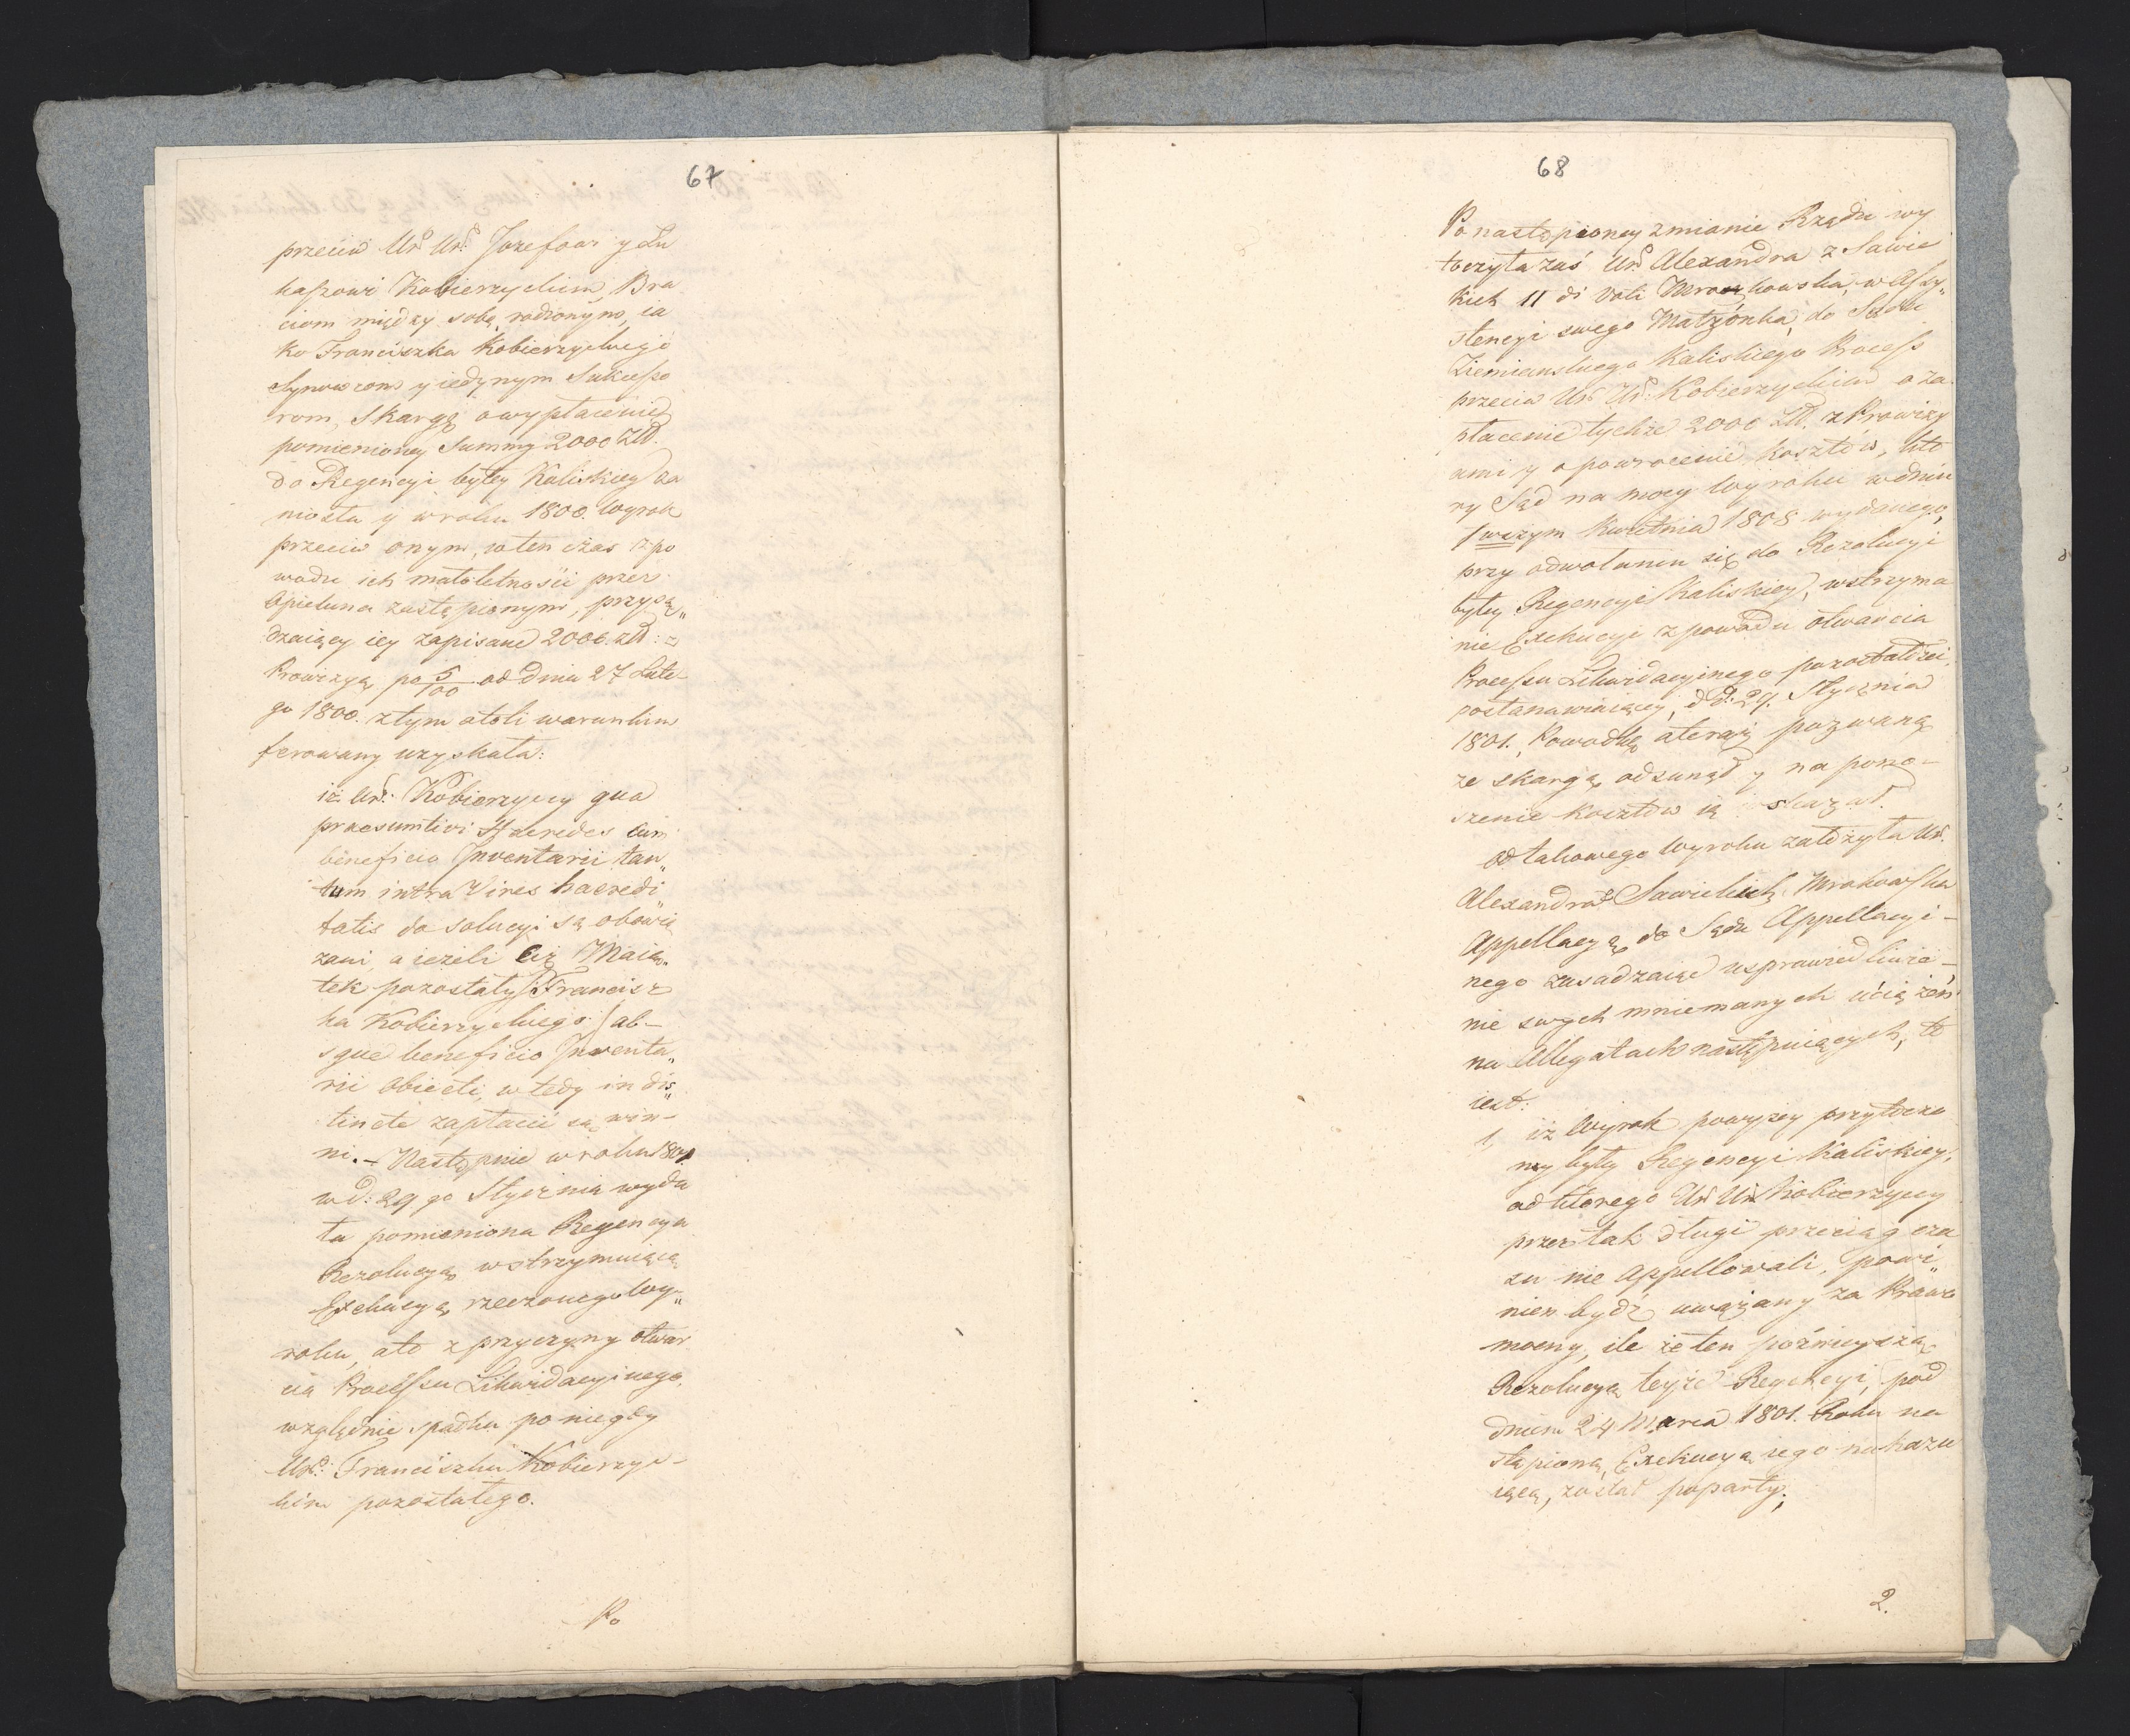 67
przeciw Ur. Ur. Jozefowi y Łu
kaszowi Kobierzyckim, Bra
ciom między sobą rodzonym, ia
ko Franciszka Kobierzyckiego
Synowcom y iedynym Sukcesso
rom, Skargę o wypłacenie
pomienioney Summy 2000 Złł.
do Regencyi byłey Kaliskiey za
niosła y w roku 1800. Wyrok
przeciw onym, wten czas z po
wodu ich małoletności przez
Opiekuna zastąpionym, przysą„
dzaiący iey zapisane 2000. złł: z
Prowizyą po 5/100 od dnia 27 Lute
go 1800. z tym atoli warunkiem
ferowany uzyskała:
iż Ur: Kobierzyccy qua
praesumtivi Haeredes cum
beneficio Inventarii tan„
tum intra Vires haeredi
tatis do solucyi są obowią
zani, a ieżeli ciż Maią„
tek pozostały Francisz
ka Kobierzyckiego ab-
sque beneficio Inventa„
rii obieeli, w tedy in dis„
tincte zapłacić są win-
ni. – Następnie w roku 1801
w d: 29 go Stycznia wyda
ła pomieniona Regencya
Rezolucyą wstrzymuiącą
Exekucyą rzeczonego Wy„
roku, a to z przyczyny otwar
cia Processu Likwidacyinego,
względnie spadku po niegdy
Ur: Franciszku Kobierzyc-
kim pozostałego.
Po
68
Po nastąpioney zmianie Rządu wy
toczyła zaś Ur. Alexandra z Sawic
kich II di Voti Mrokowska, w Assy„
stencyi swego Małżonka, do Sądu
Ziemiańskiego Kaliskiego Process
przeciw Ur. Ur: Kobierzyckim o za
płacenie tychże 2000 Złł. z Prowizy
ami y o powrocenie kosztów, któ
ry Sąd na mocy Wyroku w dniu
1wszym Kwietnia 1808 wydanego,
przy odwołaniu się do Rezolucyi
byłey Regencyi Kaliskiey, wstrzyma
nie Exekucyi z powodu otwarcia
Processu Likwidacyinego pozostałości,
postanawiaiącey, d d: 29. Stycznia
1801., Powodkę a teraz pozwaną
ze skargą odsunął y na pono-
szenie kosztów ią wskazał.
Od takowego Wyroku założyła Ur.
Alexandra z Sawickich Mrokowska
Appellacyą do Sądu Appellacyi-
nego zasadzaiąc usprawiedliwie-
nie swych mniemanych uciążeń
na Allegatach następuiących, to
iest:
1, iż Wyrok powyżey przytoczo
ny byłey Regencyi Kaliskiey,
od którego Ur Ur Kobierzyccy
przez tak długi przeciąg cza
su nie appellowali, powi„
nien bydź uważany za Prawo
mocny, ile że ten poźnieyszą
Rezolucyą teyże Regencyi, pod
dniem 24 Marca 1801. Roku na
stąpioną, Exekucyą iego nakazu
iącą, został poparty;
2.